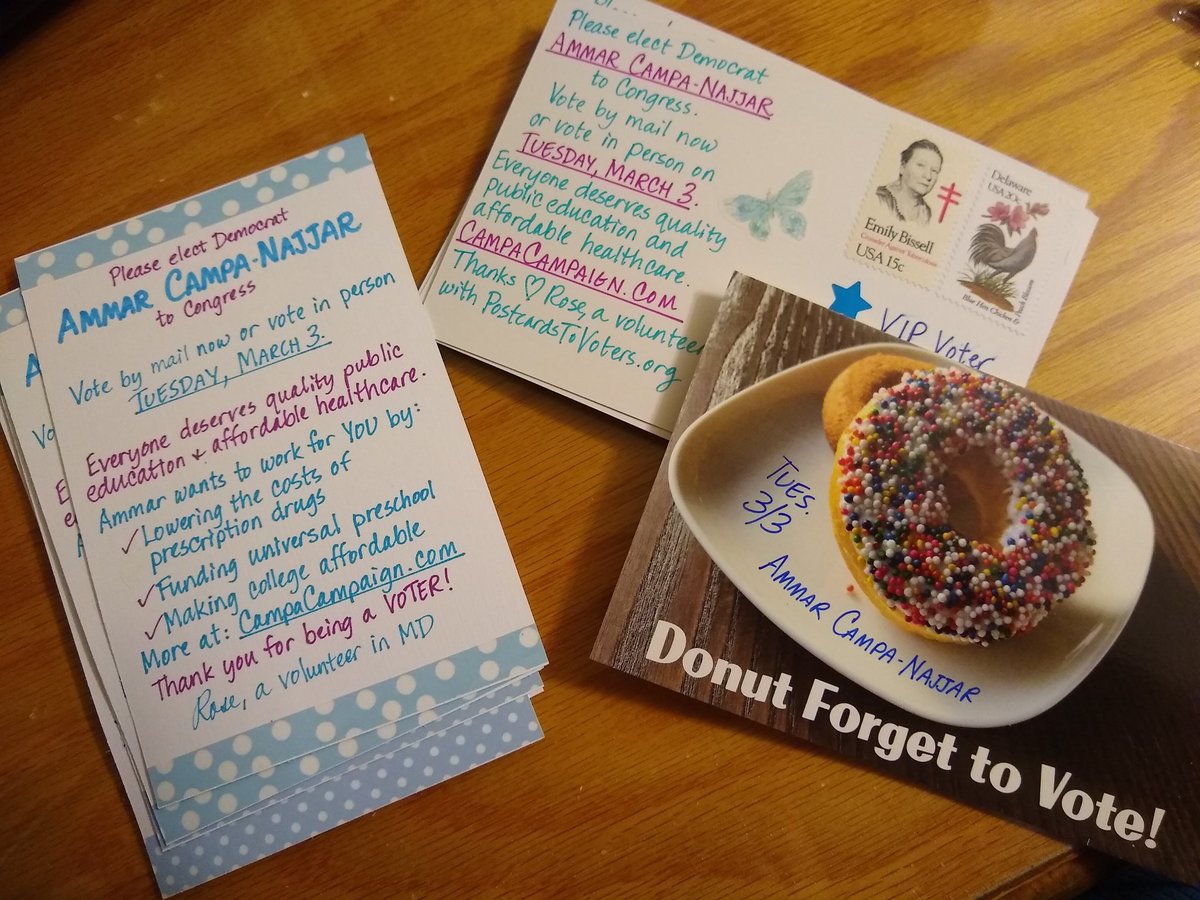 Please elect Democrat
AMMAR CAMPA-NAJJAR
to Congress
Vote by mail now or vote in person
TUESDAY, MARCH 3.
Everyone deserves quality public
education + affordable healthcare.
Ammar wants to work for YOU by:
✓Lowering the costs of
prescription drugs
✓Funding universal preschool
✓Making college affordable
More at: CampaCampaign.com
Thank you for being a VOTER!
Rose, a volunteer in MD
Please elect Democrat
AMMAR CAMPA-NAJJAR
to Congress.
Vote by mail now
or vote in person on
TUESDAY, MARCH 3.
Everyone deserves quality
public education and
affordable healthcare.
CAMPACAMPAIGN.COM
Thanks ♡ Rose, a volunteer
with PostcardsToVoters.org
Emily Bissell
Crusader Against Tuberculosis
USA 15c
Delaware
USA 20c
Blue Hen Chicken &
Peach Blossom
VIP Voter
TUES.
3/3
AMMAR CAMPA-NAJJAR
Donut Forget to Vote!